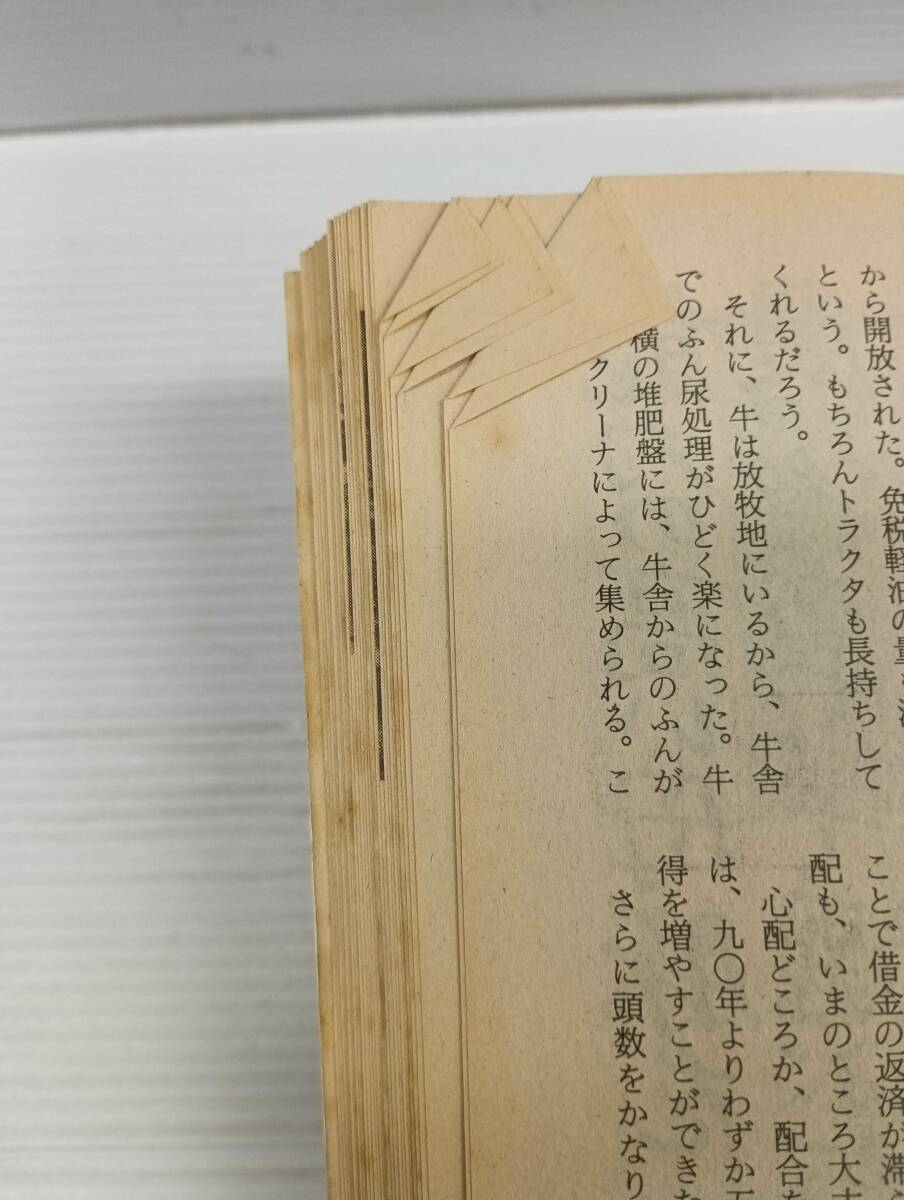 から開放された。免税軽油の量も
という。もちろんトラクタも長持ちして
くれるだろう。
それに、牛は放牧地にいるから、牛舎
でのふん尿処理がひどく楽になった。牛
横の堆肥盤には、牛舎からのふんが
クリーナによって集められる。こ
ことで借金の返済が滞
配も、いまのところ大
心配どころか、配合
は、九〇年よりわずか
得を増やすことができた
さらに頭数をかなり